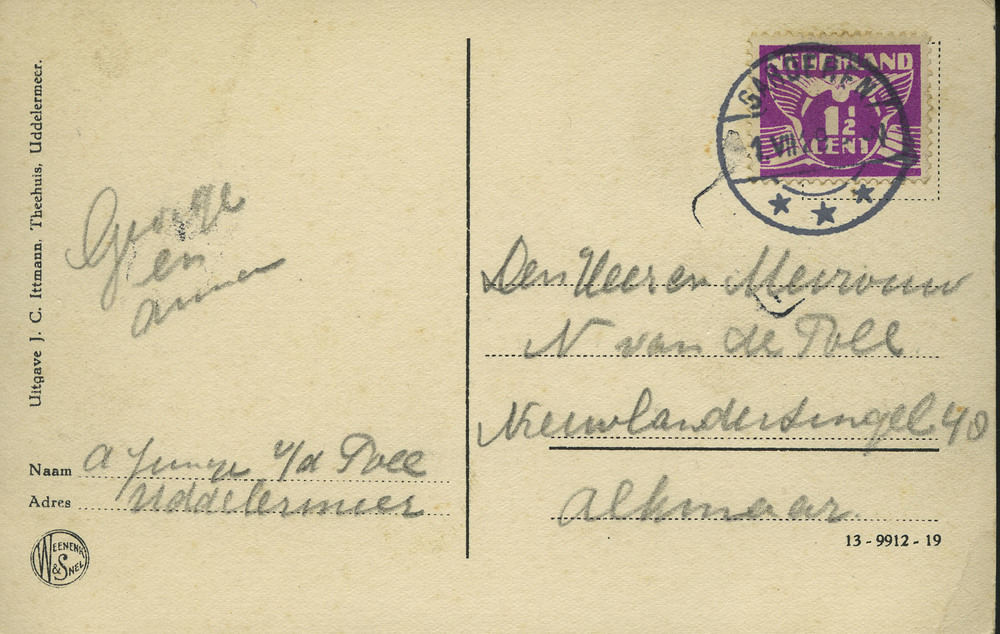 Uitgave J. C. Ittmann. Theehuis, Uddelermeer.
George
en
Naam A Junge v/d Poll
Adres Uddelermeer
WEENENK & SNEL
NEDERLAND
1½
CENT
GARDEREN
Den Heer en Mevrouw
N van de Poll
Nieuwlandersingel 40
Alkmaar.
13-9912-19